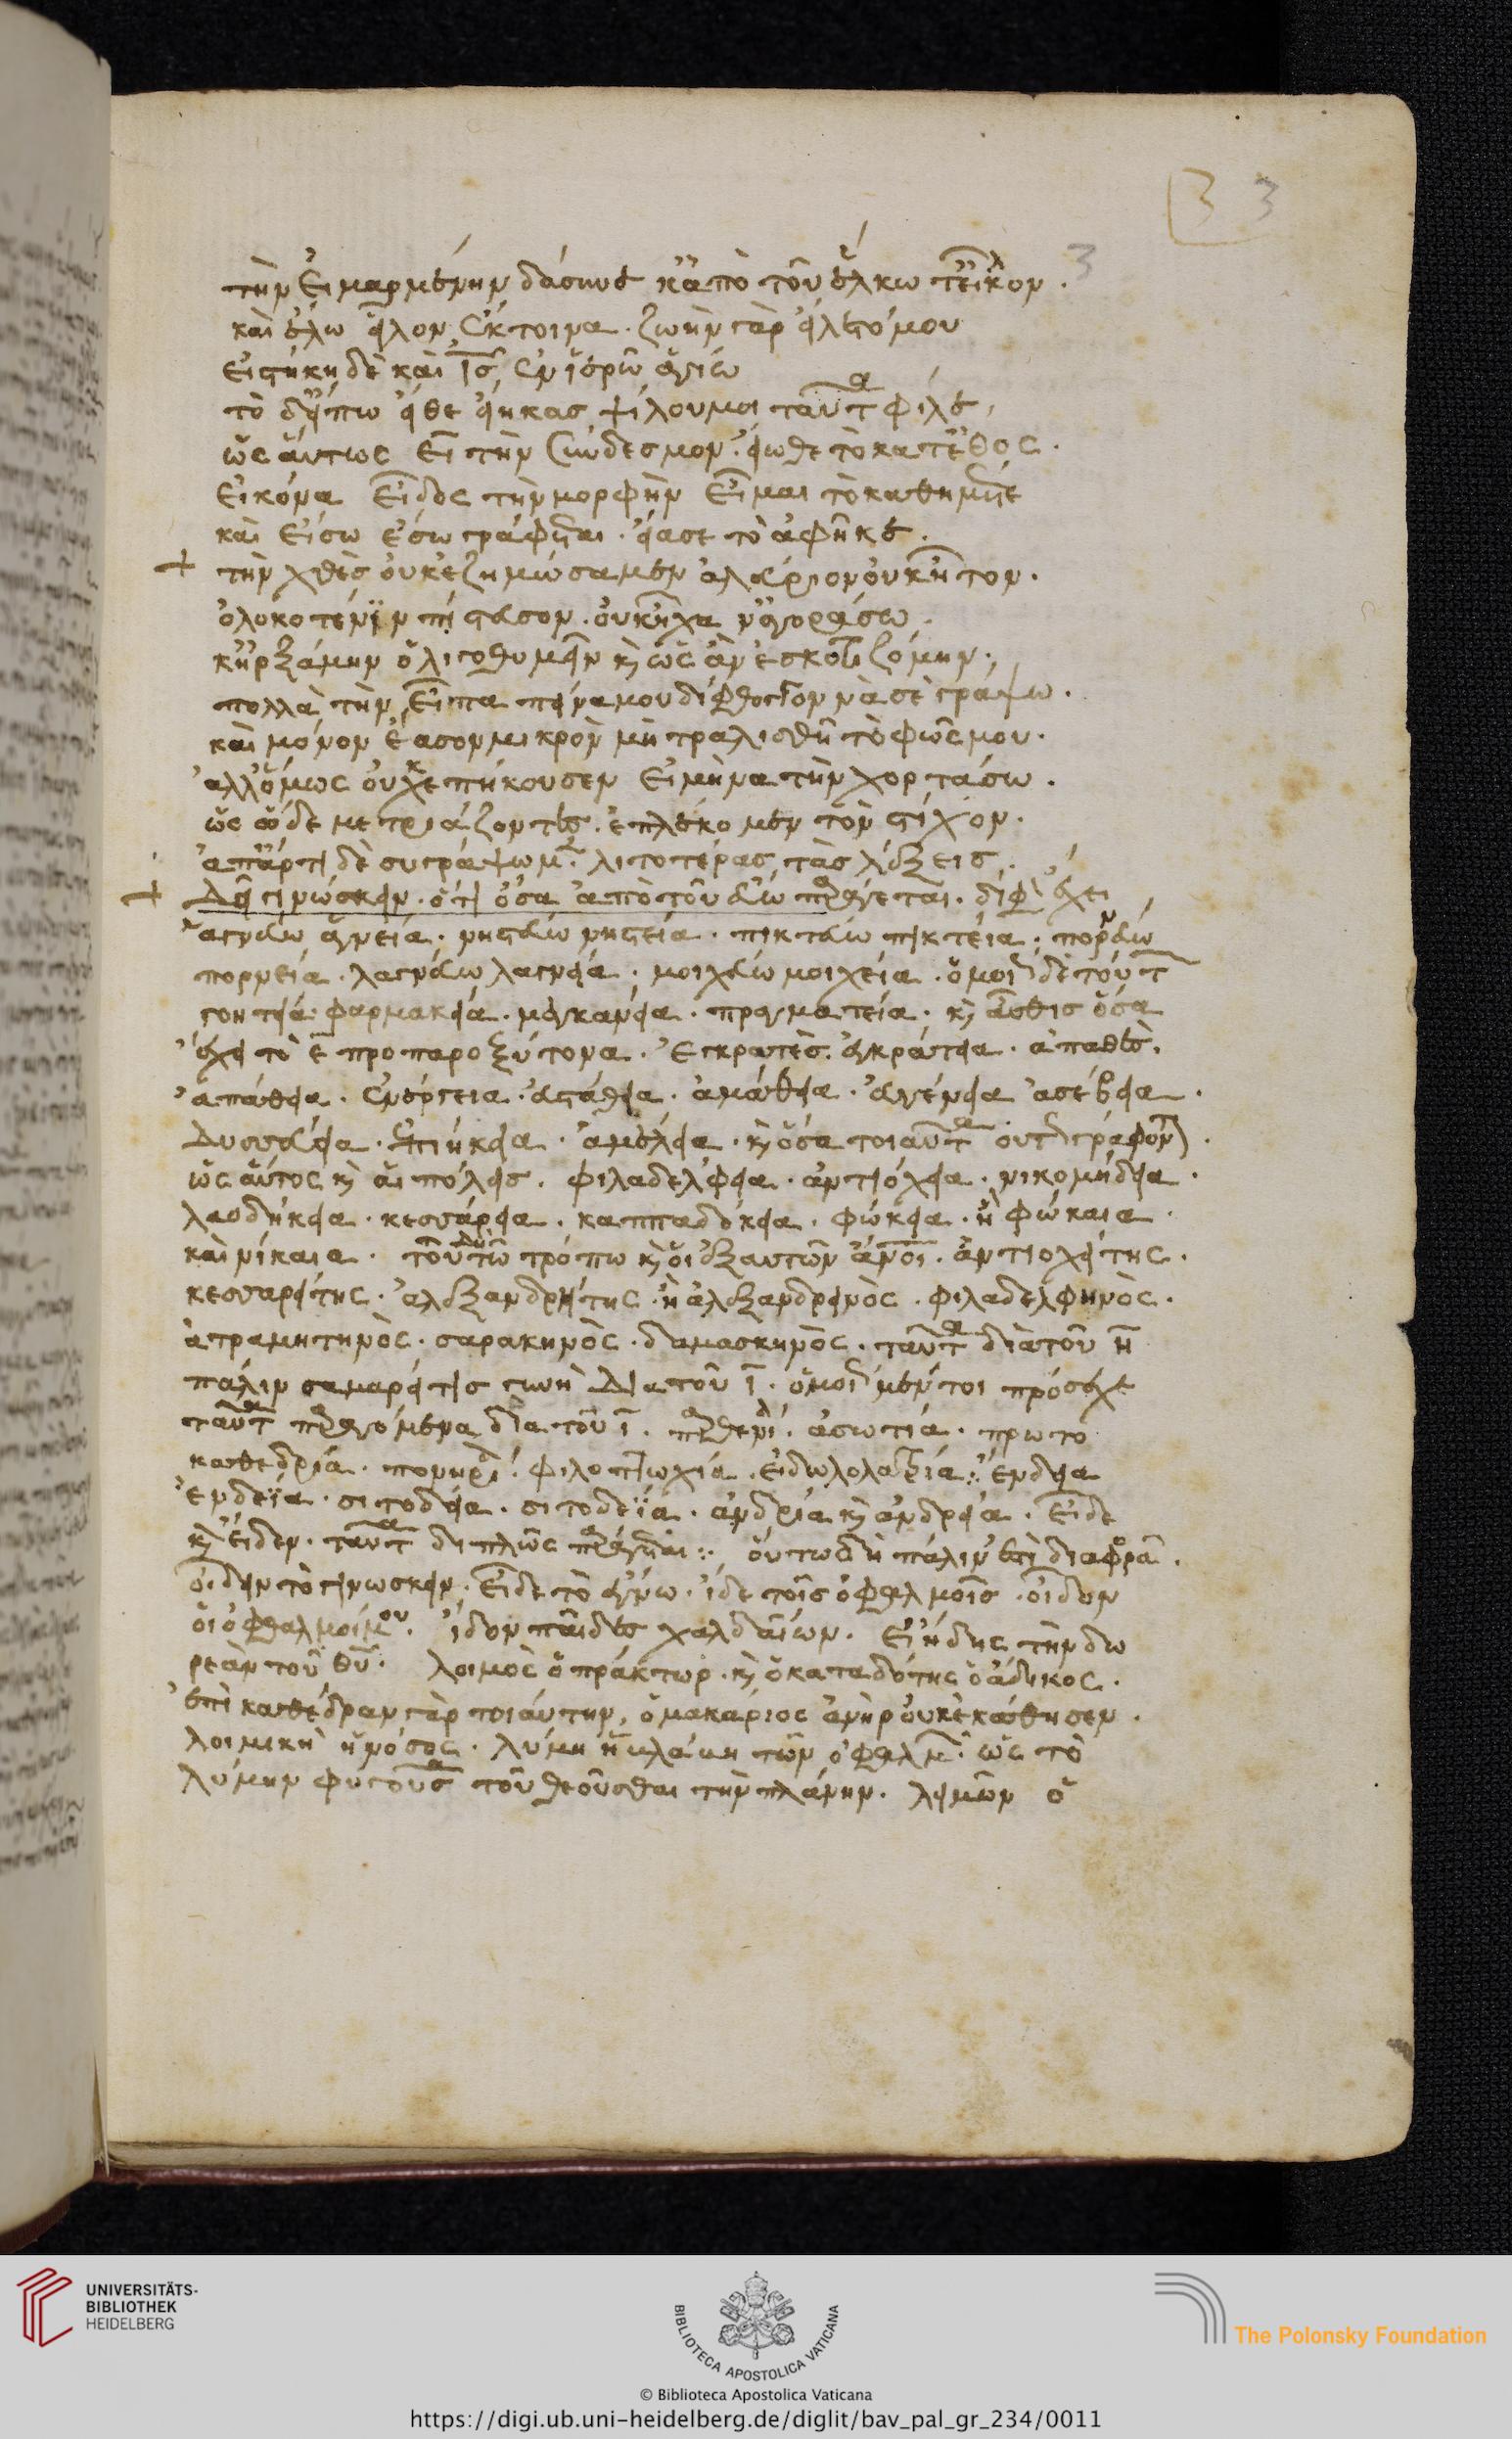 33
3
τὴν εἱμαρμένην δάσυνε κἂ ἀπὸ τοῦ ἕλκω
καὶ ἕλω εἷλον ἔκτοινα. ζωὴν γὰρ εἵλετό μου
εἱστήκη δὲ καὶ ἐν ἱερῶ ἁγίω
τὸ εἴπω εἴθε εἴηκας ψίλου μοι ταῦτα φίλε,
ὡς αὕτως εἰ τὴν σύνδεσμον. εἴωθε τὸ κατ' ἔθος.
εἰκόνα εἶδος τὴν μορφὴν εἷμαι τὸ καθημαι
καὶ εἴσω ἔσω γράφεται. εἴασε τὸ ἀφῆκε.
+ τὴν χθὲς οὐκ ἐζημώσαμεν οὐκ ἦτον.
ὁλοκοτένιν πίστασον. οὐκ εἶχα ν' ἀγοράσω.
κ' ἠρξάμην ὀλιγοθυμεῖν κ ὡς ἀν ἐσκοτιζόμην.
πολλὰ τὴν εἶπα πεῖνα μου διφθοστον νὰ σὲ γράψω.
καὶ μόνον ἔασον μικρὸν μὴ τραλισθῆ τὸ φῶς μου.
ἀλλ' ὅμως οὐκ ἐπήκουσεν εἰ μὴ νὰ τὴν χορτάσω.
ὡς ὧδε μετριάζοντες. ἐπλέκομεν τὸν στίχον.
ἀπάρτι δὲ συγράψωμ λιτοτέρας τὰς λέξεις.
+ Δεῖ γινώσκειν. ὅτι ὅσα ἀπὸ τοῦ εύω παράγεται. διφ ἔχει
ἁγνεύω ἁγνεία. νηστεύω νηστεία. πικτεύω πικτεία. πορνεύω
πορνεία. λαγνεύω λαγνεία. μοιχεύω μοιχεία. ὁμοι δὲ τούτ
γοητεία. φαρμακεία. μαγκανεία. πραγματεία. κ αὖθις ὅσα
ἔχει τὸ ε προπαροξύτονα. ἐγκρατὲς. ἐγκράτεια. ἀπαθὲς.
ἀπάθεια. ἐνέργεια. εὐστάθεια. ἀμάθεια. εὐγένεια ἀσέβεια.
Δυσσέβεια. ἐπιείκεια. ἀμέλεια. κ ὅσα τοιαῦτα οὕτ γράφοντ.
ὡς αὕτος κ αἱ πόλεις. φιλαδέλφεια. ἀντιόχεια. νικομήδεια.
λαοδίκεια. κεσάρεια. καππαδόκεια. φώκεια. ἢ φώκαια.
καὶ νίκαια. τοῦτω τρόπω κ οἱ ἐξ αυτῶν ἄνοι. ἀντιοχείτης.
κεσαρείτης. ἀλεξανδρίτης ἢ ἀλεξανδρεινὸς. φιλαδελφηνὸς.
ἀτραμητηνὸς. σαρακηνὸς. δαμασκηνὸς. ταῦτα διὰ τοῦ η
πάλιν σαμαρείτις γυνὴ διὰ τοῦ ι. ὁμοι μέντοι πρόσεχε
ταῦτα παραγόμενα διὰ τοῦ ι. ἀσωτία. πρωτο
καθεδρία. πονηρί. φιλοπτωχία. εἰδωλολατρία: ἔνδεια
ἐνδεΐα. σιτοδεία. σιτοδεΐα. ἀνδρία κ ἀνδρεία. εἶδε
κ εἶδεν. ταῦτα διπλῶς παράγεται: οὕτω δὴ πάλιν ἐπὶ διαφορᾶ.
οἶδεν τὸ γινώσκειν. εἶδε τὸ ἔγνω. ἴδε τοῖς ὀφθαλμοῖς. οἶδον
οἱ ὀφθαλμοί μου. ἴδον παῖδες χαλδαίων. εἰ ἤδης τὴν δω
ρεὰν τοῦ θυ. λοιμὸς ὁ πράκτωρ. κ ὁ καταδότης ὁ ἄδικος.
ἐπὶ καθέδραν γὰρ τοιαύτην, ὁ μακάριος ἀνὴρ οὐκ ἐκάθησεν.
λοιμικὴ ἡ νόσος. λύμη ἡ βλάβη τῶν ὀφθαλμ. ὡς τὸ
λύμην φυγοῦσα τοῦ θεοῦσθαι τὴν πλάνην. λειμῶν ὁ
UNIVERSITÄTS-
BIBLIOTHEK
HEIDELBERG
BIBLIOTECA APOSTOLICA VATICANA
The Polonsky Foundation
© Biblioteca Apostolica Vaticana
https://digi.ub.uni-heidelberg.de/diglit/bav_pal_gr_234/0011